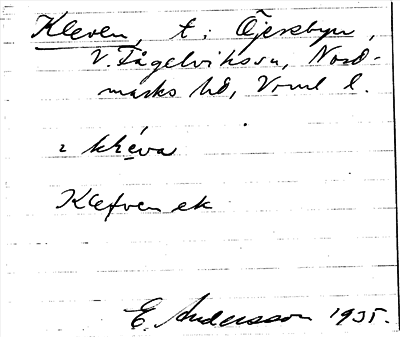 Kleven, t. Öjersbyn,
V. Fågelviks sn, Nord-
marks hd, Vrml l.
kléva
Klefven ek
E. Andersson 1935.